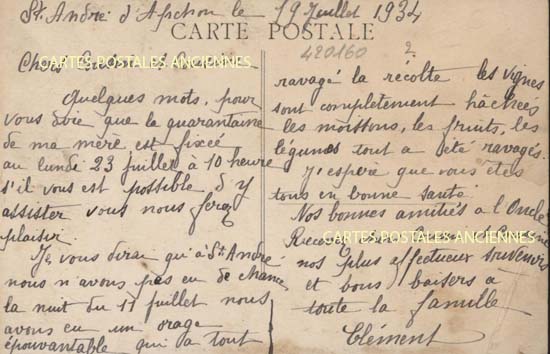 St. André d'Apchon le 19 Juillet 1934
CARTE POSTALE
420160
?
Chers Cousin et Cousine
CARTES POSTALES ANCIENNES
Quelques mots, pour
vous dire que la quarantaine
de ma mère est fixée
au lundi 23 juillet à 10 heure
s'il vous est possible d'y
assister vous nous ferez
plaisir.
Je vous dirai qu'à St André
nous n'avons pas eu de chance,
la nuit du 11 juillet nous
avons eu un orage
épouvantable qui a tout
ravagé la récolte les vignes
sont complètement hâchées
les moissons, les fruits, les
légumes tout a été ravagés.
J'espère que vous êtes
tous en bonne santé.
Nos bonnes amitiés à l'Oncle
CARTES POSTALES ANCIENNES
nos plus affectueux souvenirs
et bons baisers a
toute la famille
Clément